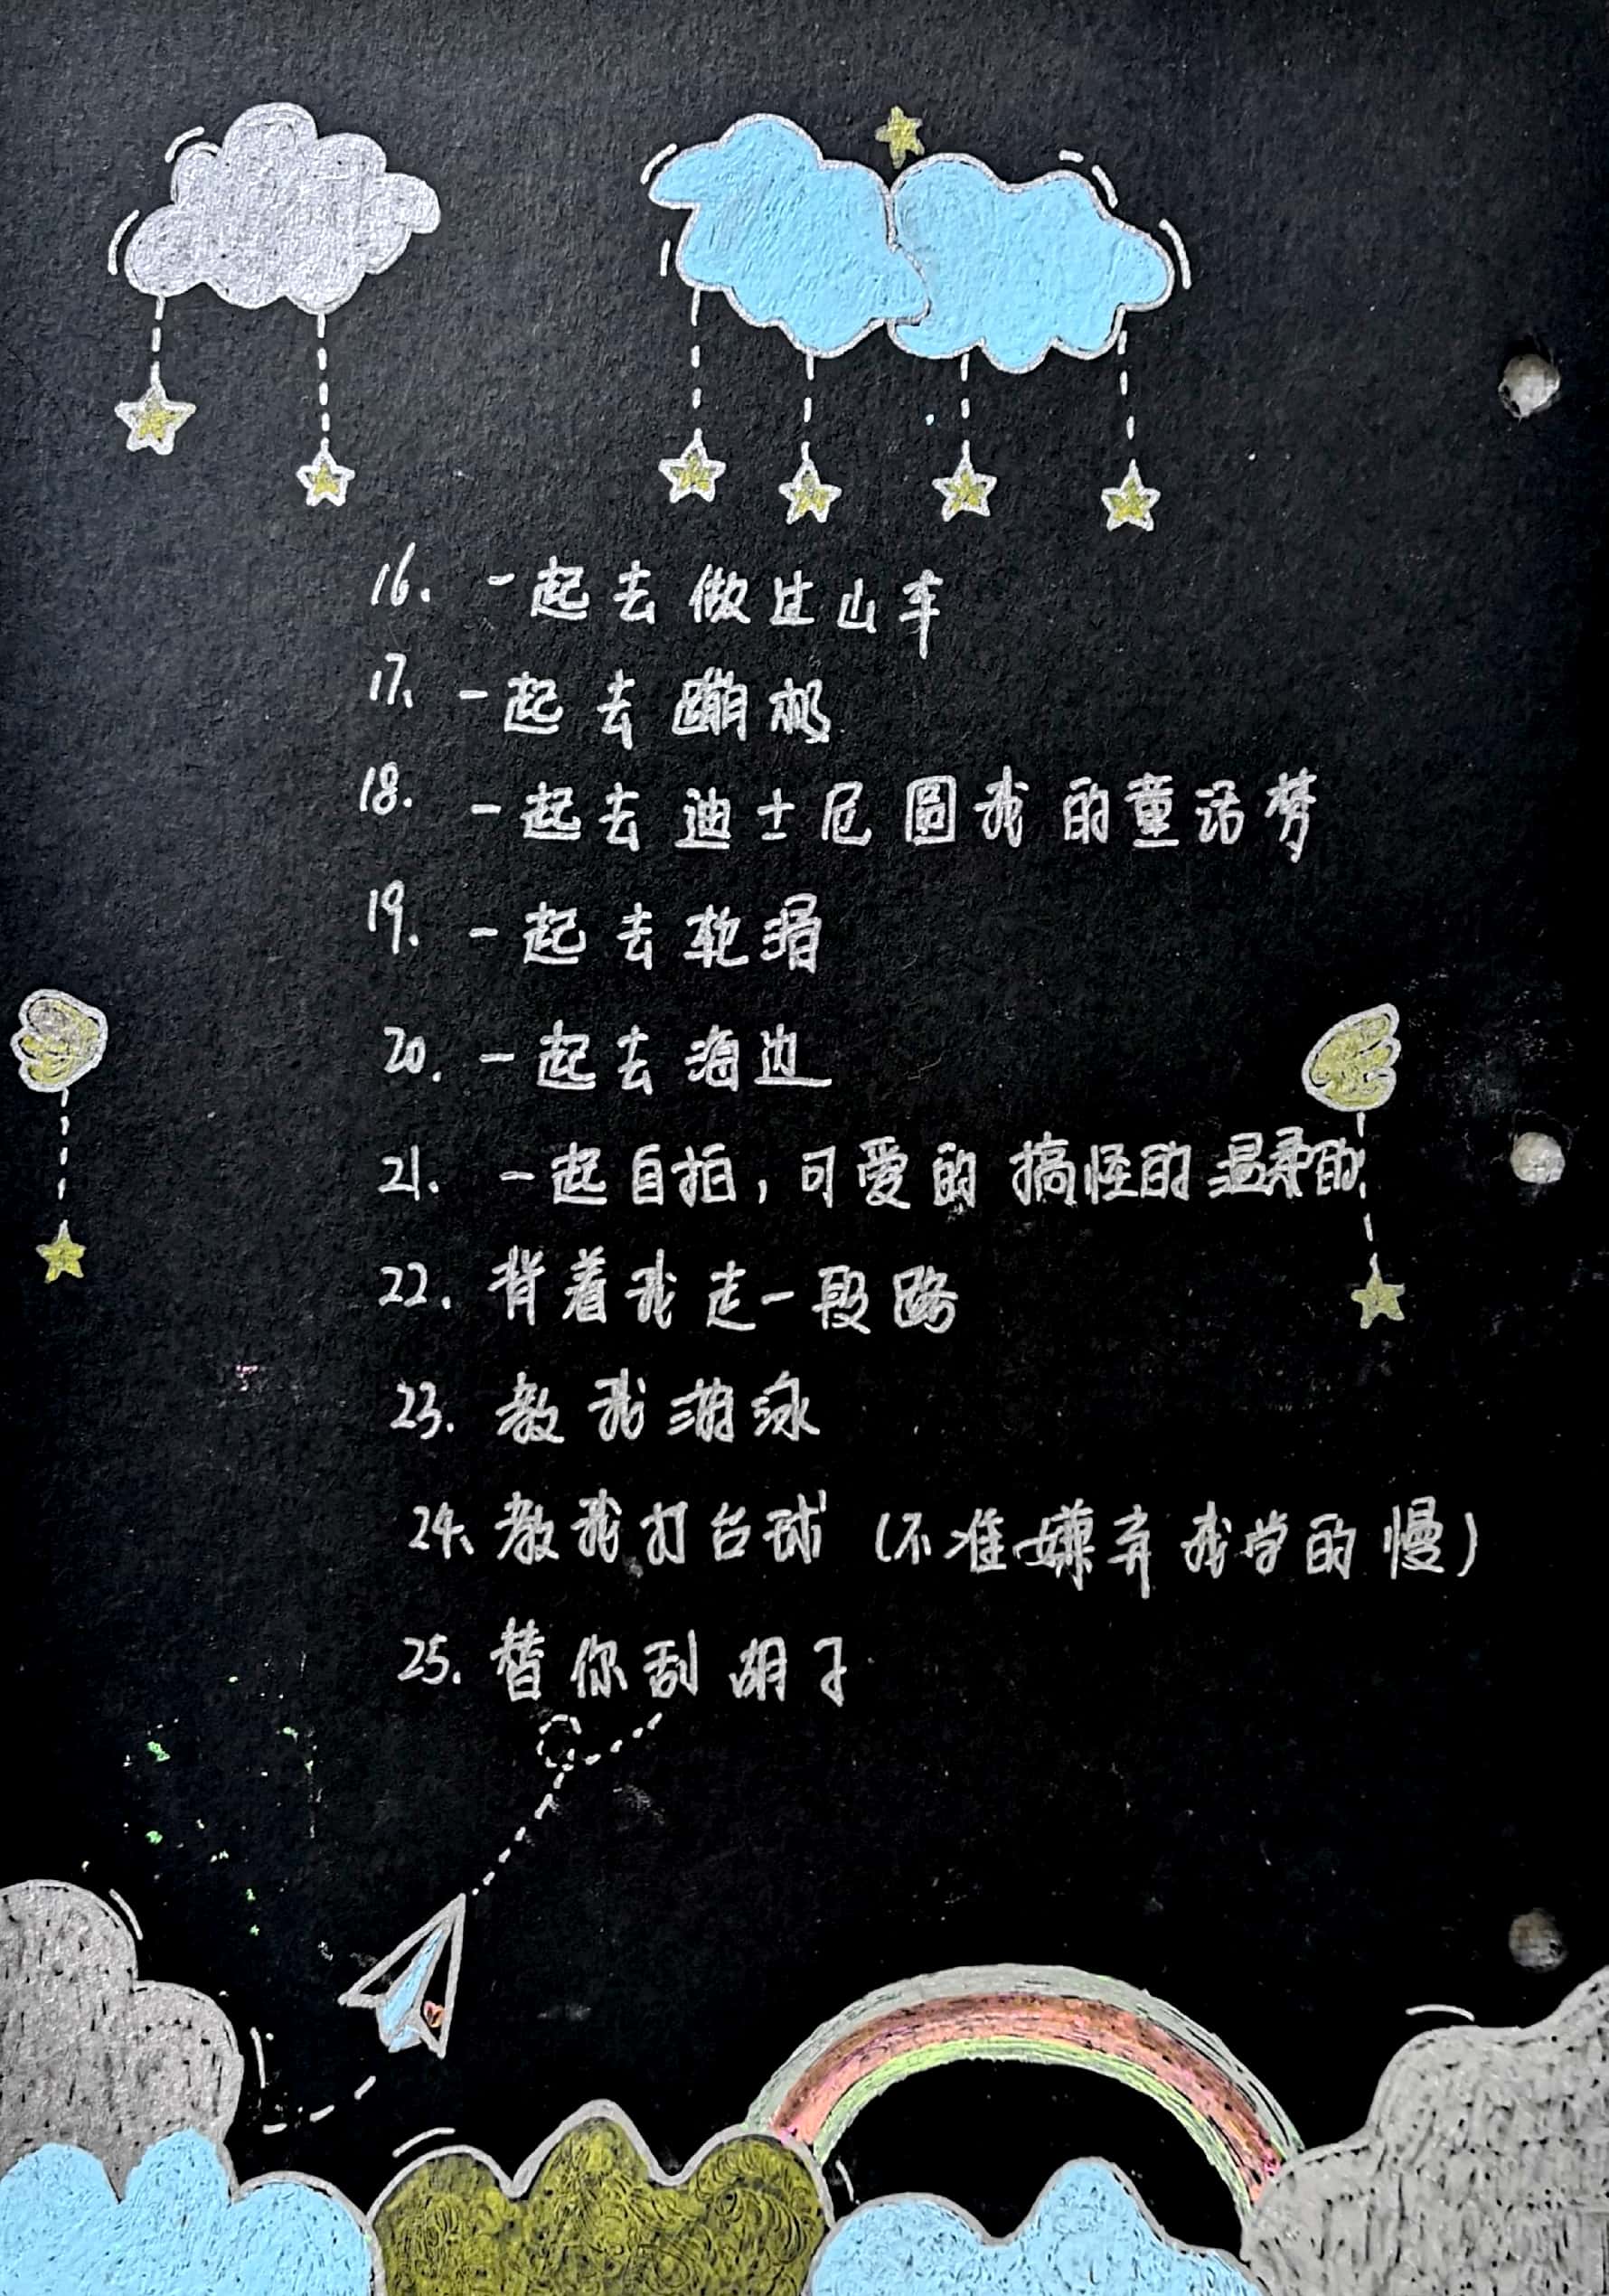 16. 一起去做过山车
17. 一起去蹦极
18. 一起去迪士尼圆我的童话梦
19. 一起去轮滑
20. 一起去海边
21. 一起自拍，可爱的搞怪的温柔的
22. 背着我走一段路
23. 教我游泳
24、教我打台球（不准嫌弃我学的慢）
25. 替你刮胡子